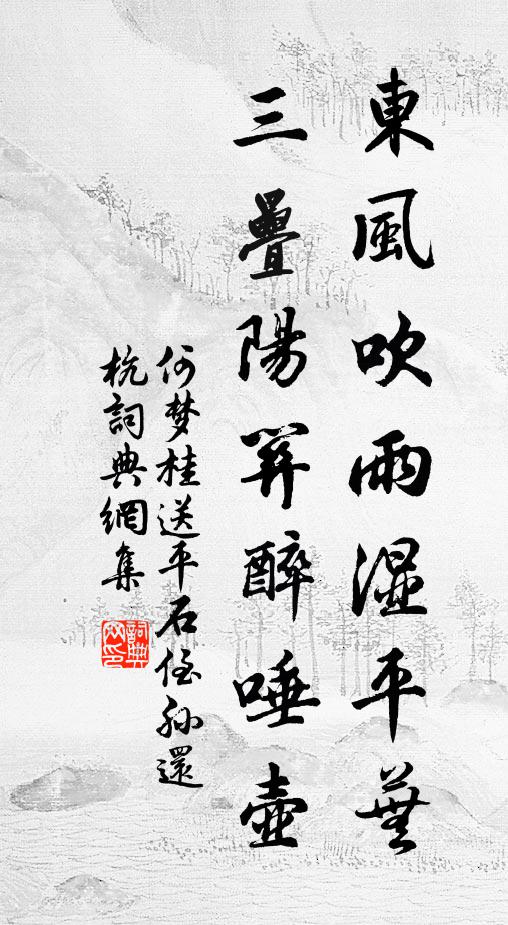 東風吹雨湿平蕪
三疊陽關醉唾壺
何梦桂送平石侄孙還
杭詞典網集
詞典网印